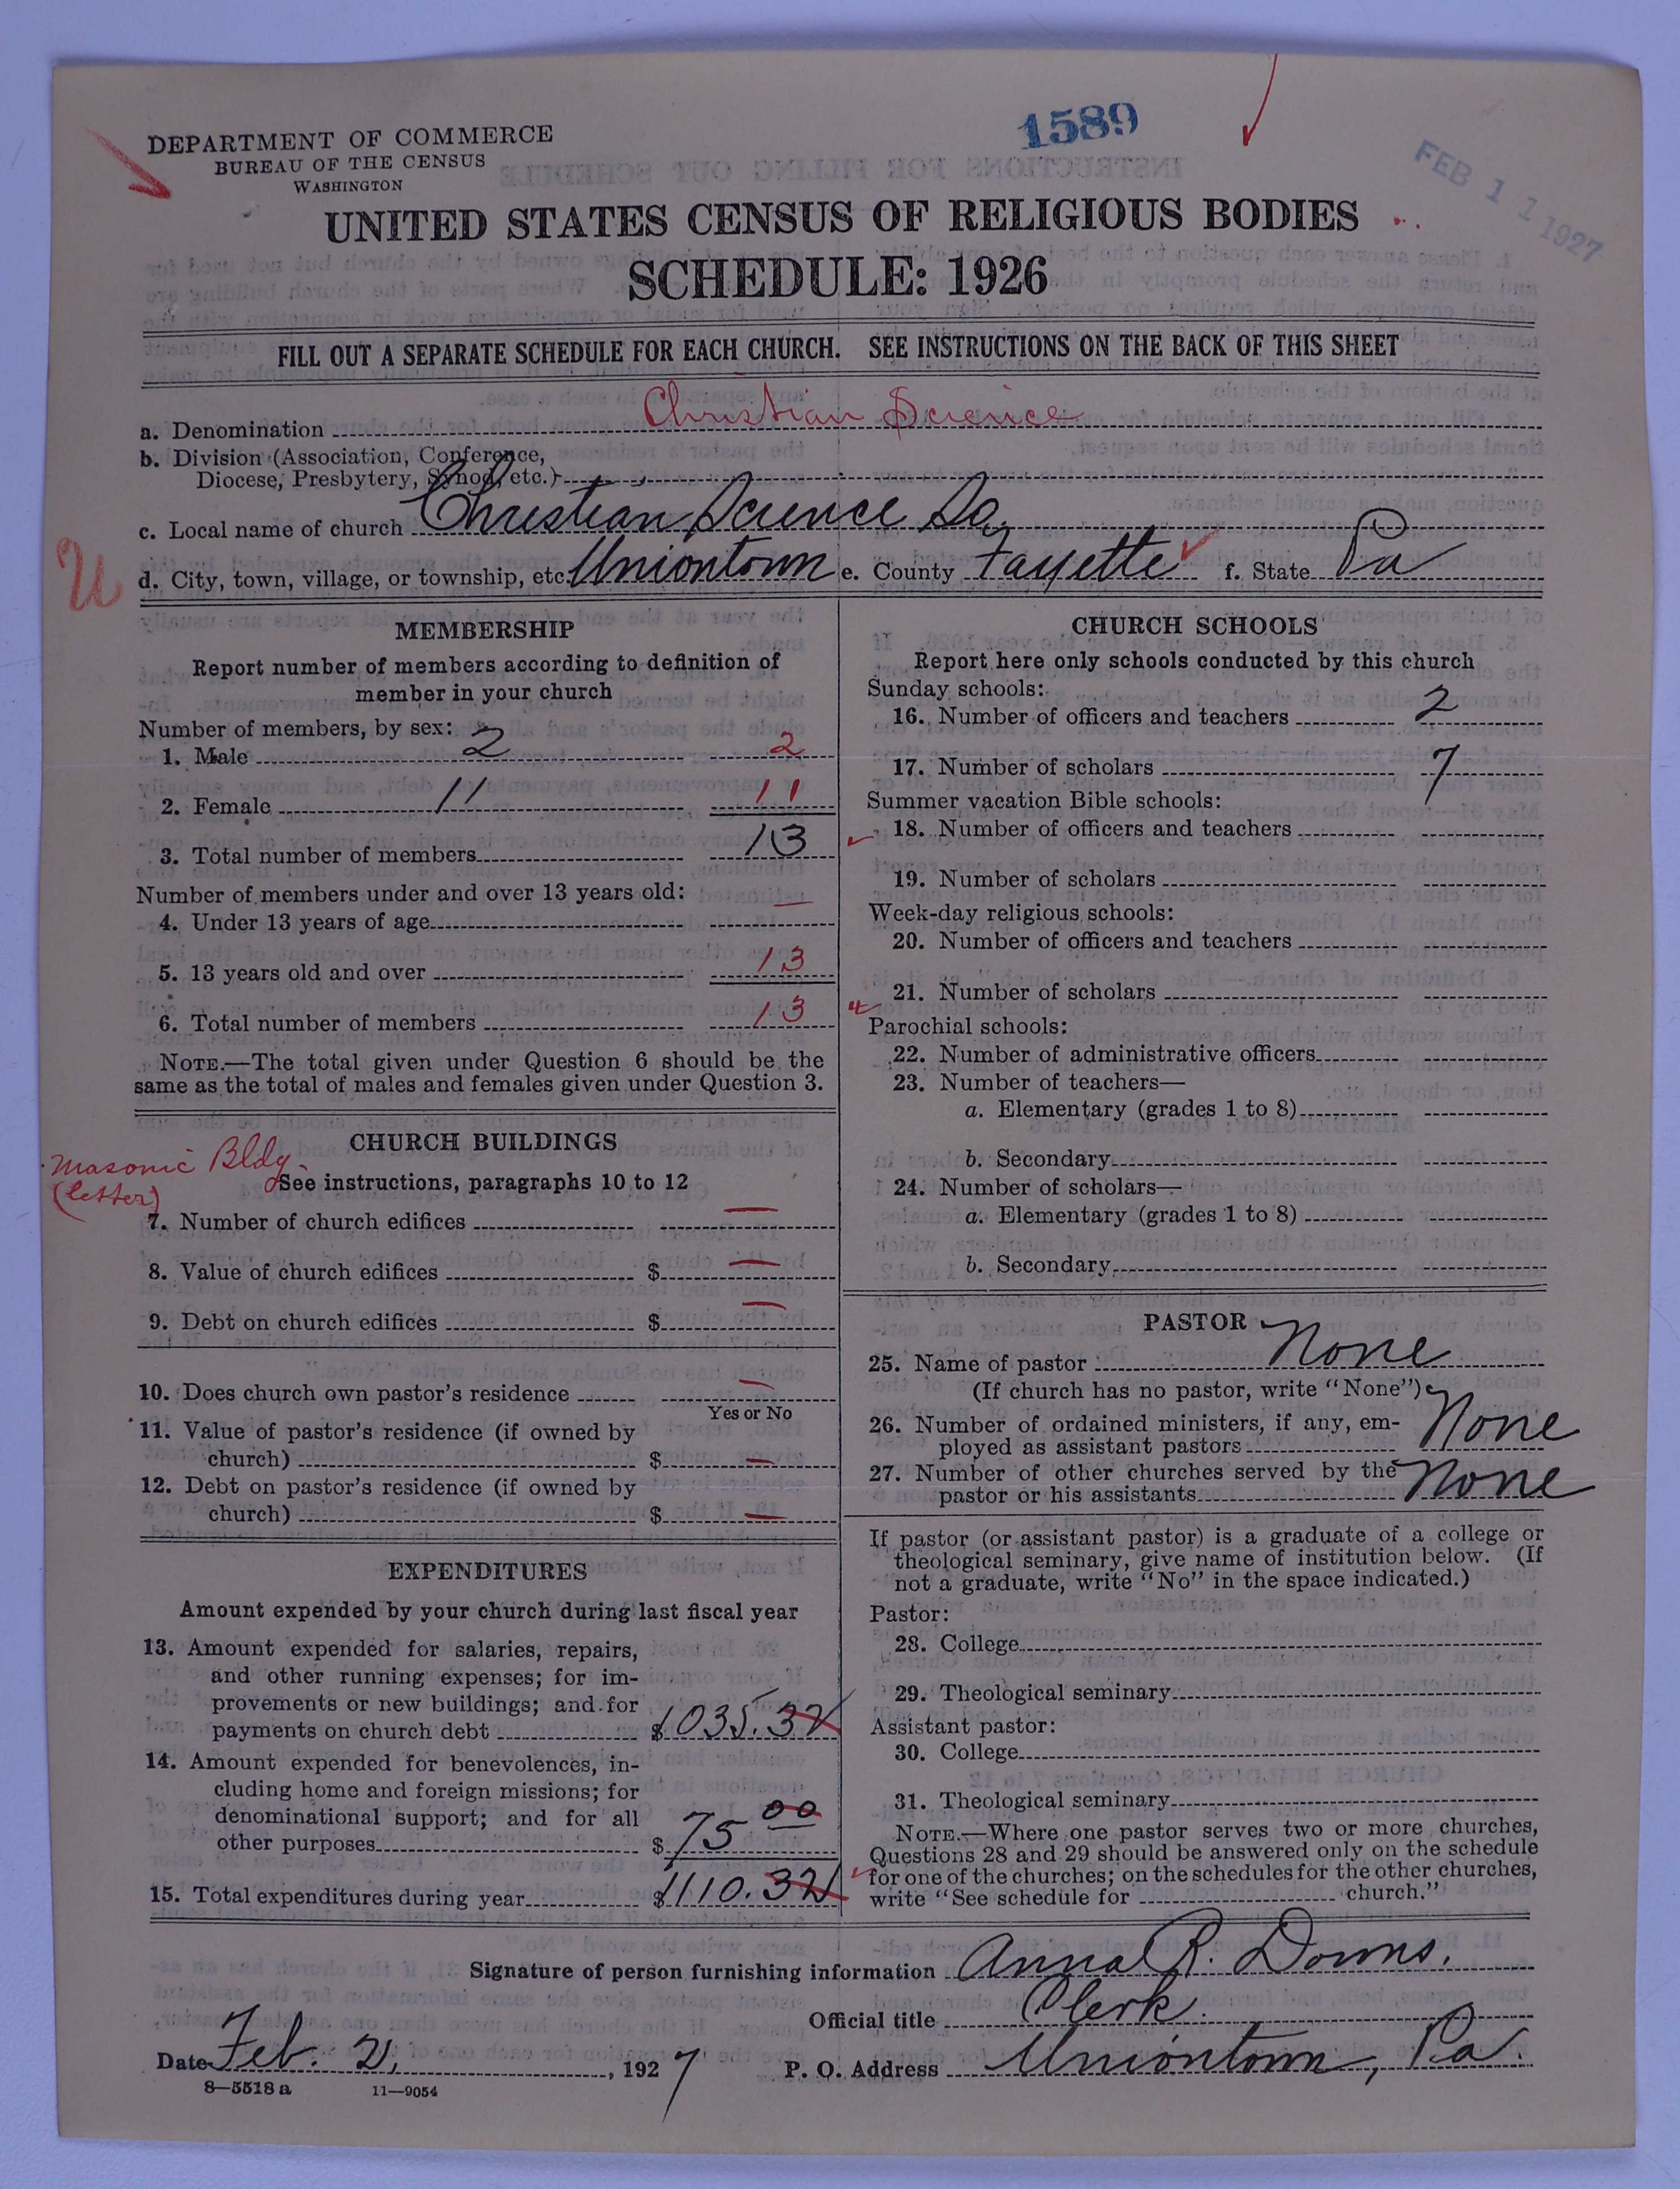 1589
FEB 11 1927
DEPARTMENT OF COMMERCE
BUREAU OF THE CENSUS
WASHINGTON
UNITED STATES CENSUS OF RELIGIOUS BODIES
SCHEDULE: 1926
FILL OUT A SEPARATE SCHEDULE FOR EACH CHURCH. SEE INSTRUCTIONS ON THE BACK OF THIS SHEET
a. Denomination Christian Science
b. Division (Association, Conference,
Diocese, Presbytery, Synod, etc.)
c. Local name of church Christian Science So.
U
d. City, town, village, or township, etc. Uniontown e. County Fayette f. State Pa
MEMBERSHIP
Report number of members according to definition of
member in your church
Number of members, by sex:
1. Male 2 2
2. Female 11 11
3. Total number of members 13
Number of members under and over 13 years old:
4. Under 13 years of age —
5. 13 years old and over 13
6. Total number of members 13
NOTE.—The total given under Question 6 should be the
same as the total of males and females given under Question 3.
CHURCH BUILDINGS
Masonic Bldg.
(letter)
See instructions, paragraphs 10 to 12
7. Number of church edifices —
8. Value of church edifices $ —
9. Debt on church edifices $ —
10. Does church own pastor's residence —
Yes or No
11. Value of pastor's residence (if owned by
church) $ —
12. Debt on pastor's residence (if owned by
church) $ —
EXPENDITURES
Amount expended by your church during last fiscal year
13. Amount expended for salaries, repairs,
and other running expenses; for im-
provements or new buildings; and for
payments on church debt $1035.32
14. Amount expended for benevolences, in-
cluding home and foreign missions; for
denominational support; and for all
other purposes $75 00
15. Total expenditures during year $1110.32
CHURCH SCHOOLS
Report here only schools conducted by this church
Sunday schools:
16. Number of officers and teachers 2
17. Number of scholars 7
Summer vacation Bible schools:
18. Number of officers and teachers
19. Number of scholars
Week-day religious schools:
20. Number of officers and teachers
21. Number of scholars
Parochial schools:
22. Number of administrative officers
23. Number of teachers—
a. Elementary (grades 1 to 8)
b. Secondary
24. Number of scholars—
a. Elementary (grades 1 to 8)
b. Secondary
PASTOR
25. Name of pastor None
(If church has no pastor, write "None")
26. Number of ordained ministers, if any, em-
ployed as assistant pastors None
27. Number of other churches served by the
pastor or his assistants None
If pastor (or assistant pastor) is a graduate of a college or
theological seminary, give name of institution below. (If
not a graduate, write "No" in the space indicated.)
Pastor:
28. College
29. Theological seminary
Assistant pastor:
30. College
31. Theological seminary
NOTE.—Where one pastor serves two or more churches,
Questions 28 and 29 should be answered only on the schedule
for one of the churches; on the schedules for the other churches,
write "See schedule for church."
Signature of person furnishing information Anna R. Downs.
Official title Clerk.
Date Feb. 2, 1927 P. O. Address Uniontown, Pa.
8—5518 a 11—9054